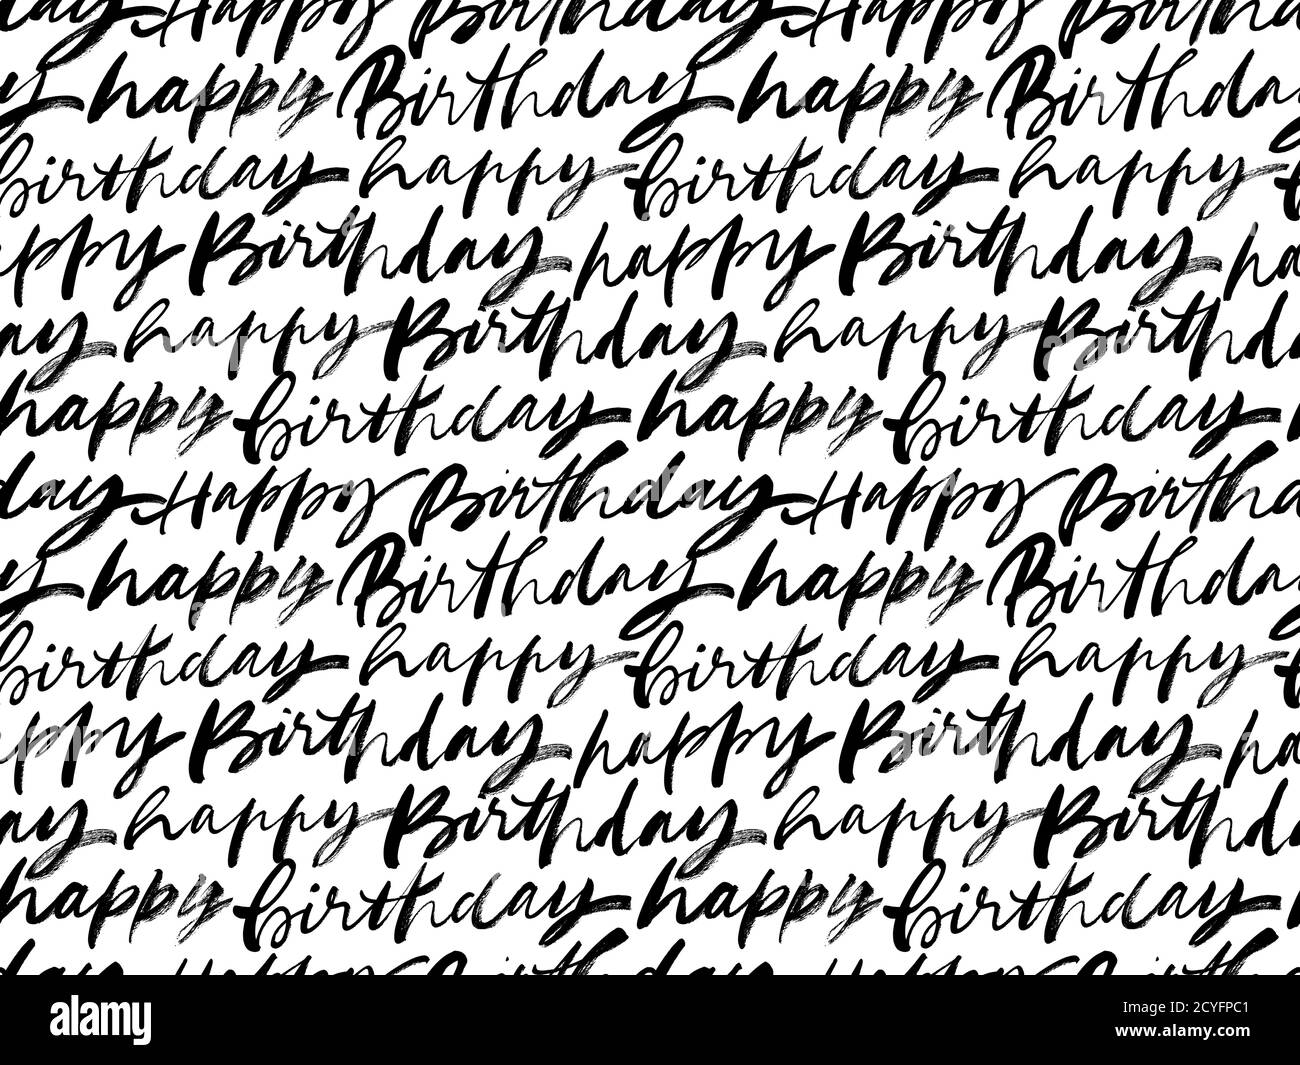 day Happy Birthday Happy Birthday
y happy Birthday happy Birthda
birthday happy birthday happy
appy Birthday happy Birthday ha
ay happy Birthday happy Birth
happy birthday happy birthday
day Happy Birthday Happy Birthd
y happy Birthday happy Birthda
birthday happy birthday happy
appy Birthday happy Birthday ha
ay happy Birthday happy Birthd
happy birthday happy birthday
day Happy Birthday Happy
alamy
Image ID: 2CYFPC1
www.alamy.com